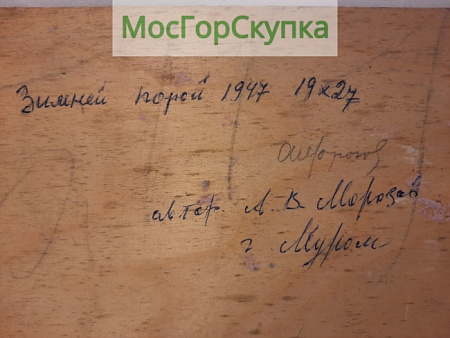 МосГорСкупка
Зимней порой 1947 19x27
автор. А. В. Морозов
г Муром